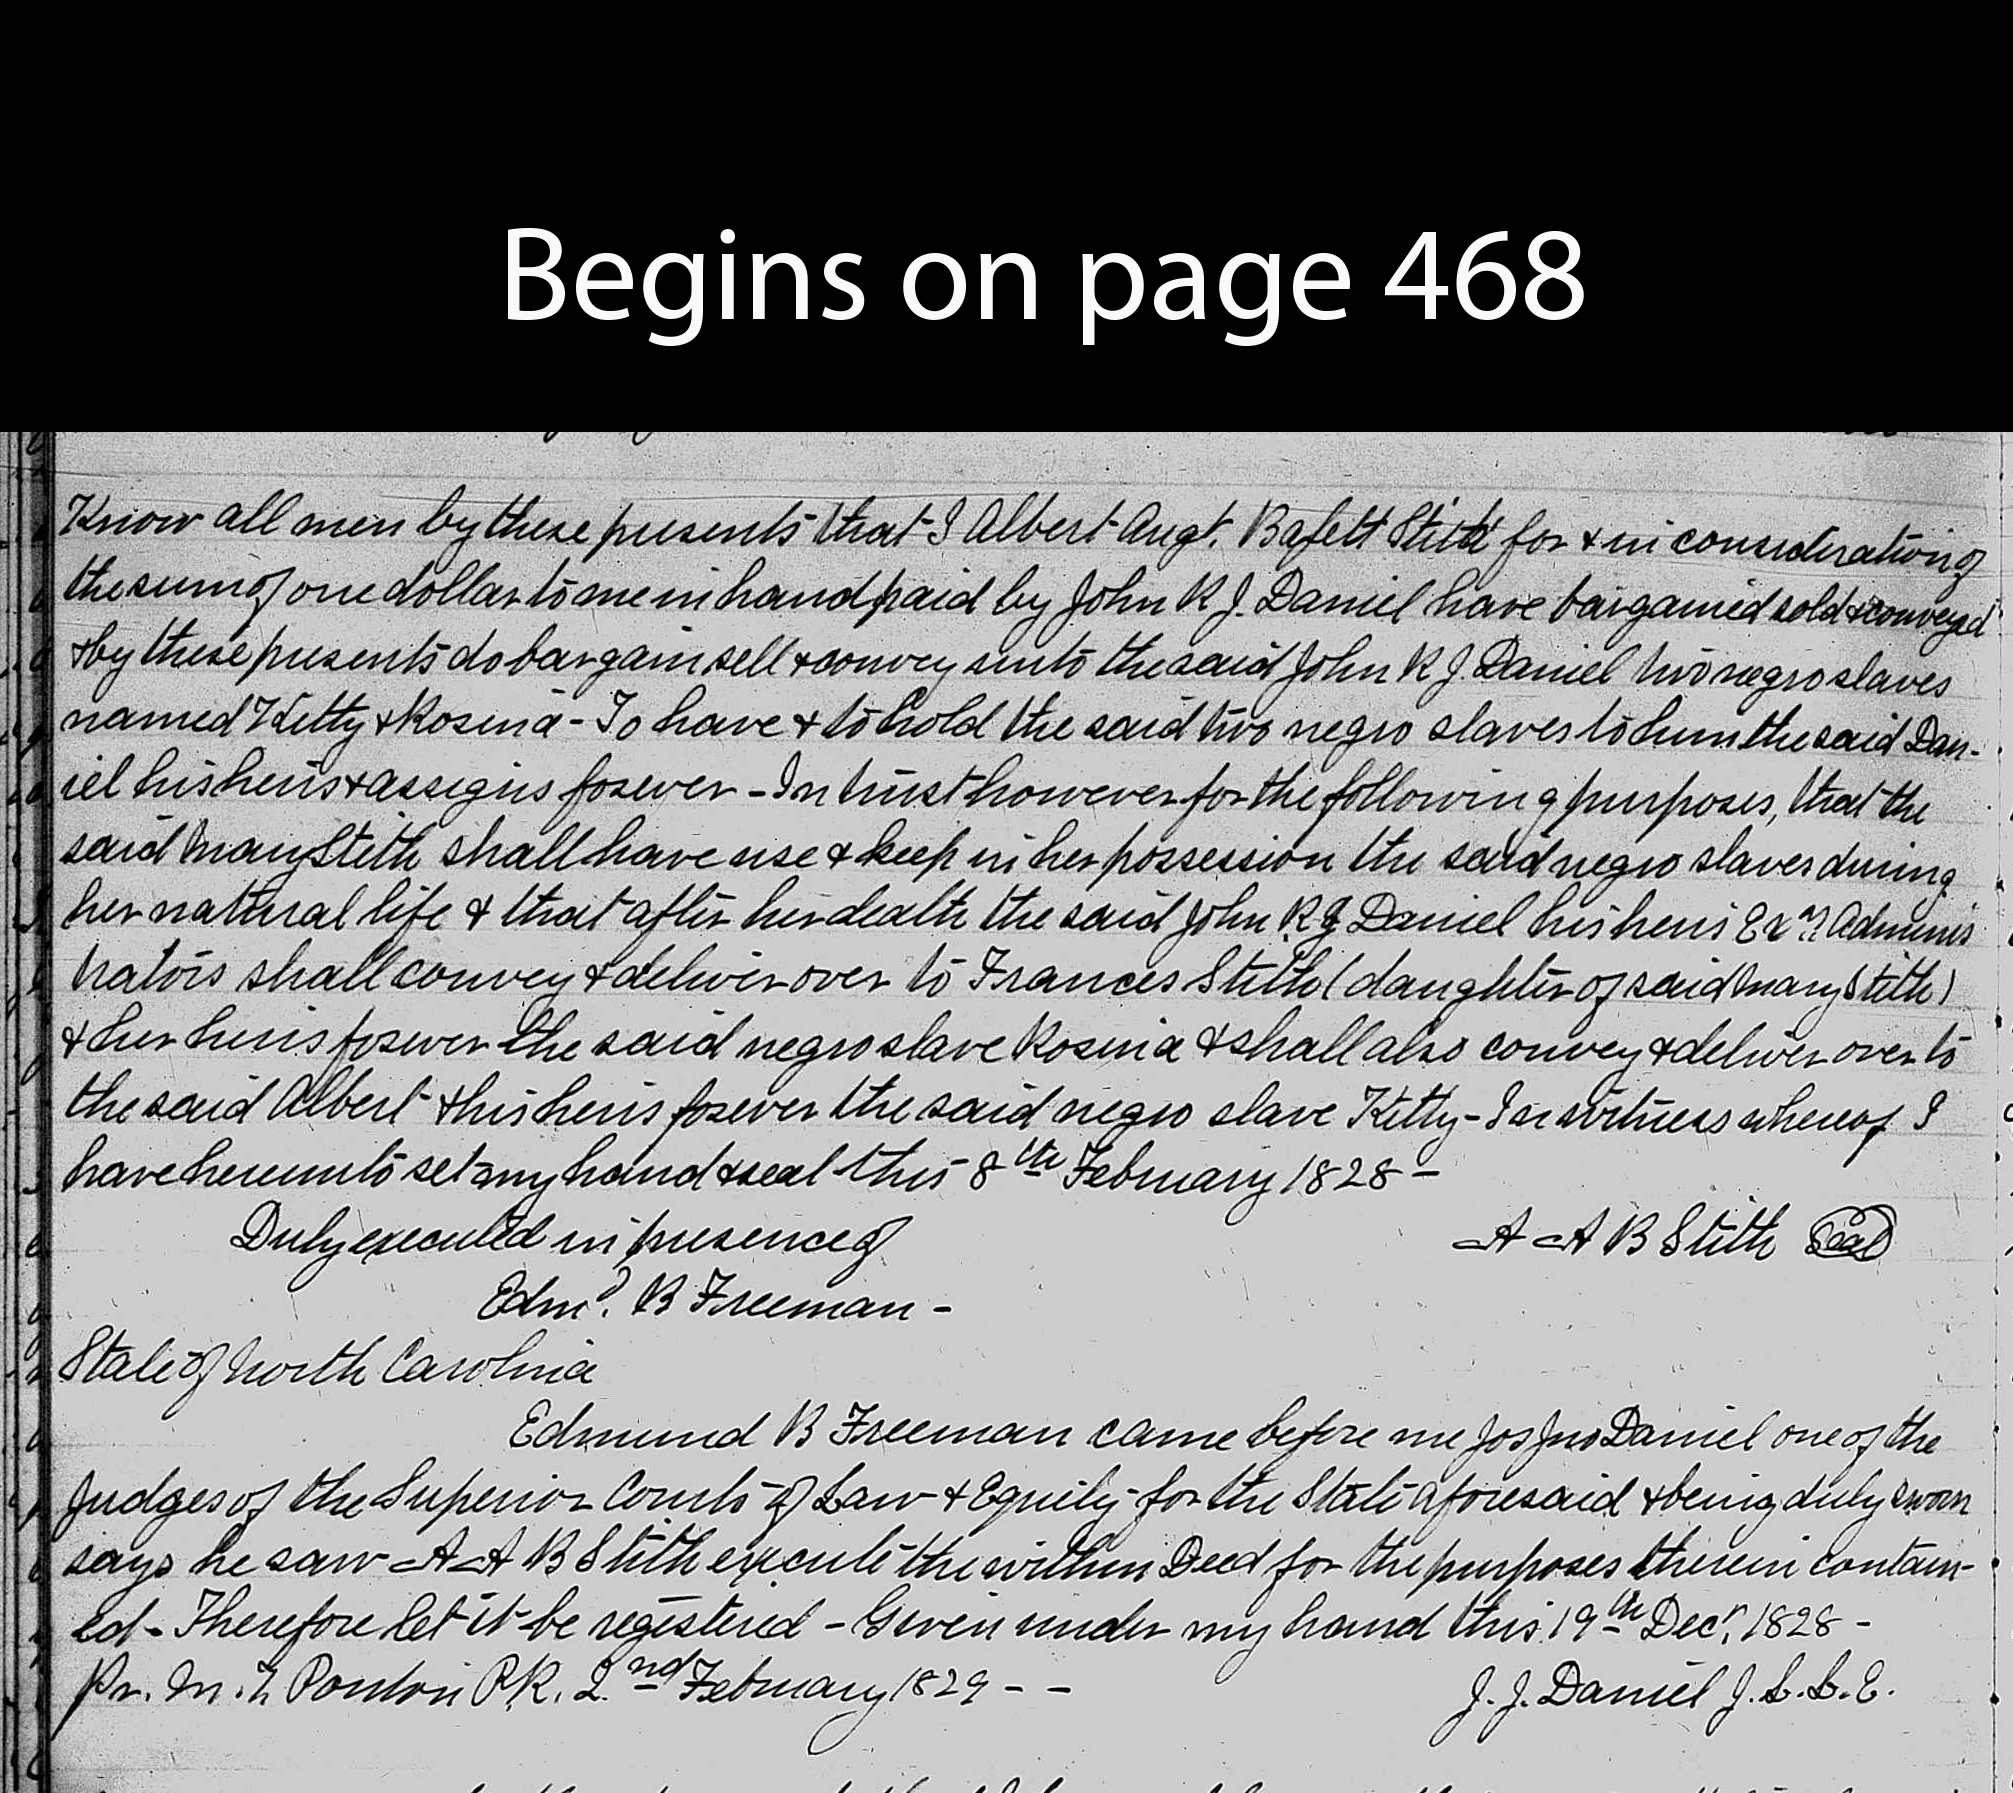 Begins on page 468
Know all men by these presents that I Albert Augt. Bafett Stith for & in consideration of
the sum of one dollar to me in hand paid by John R J. Daniel have bargained sold & conveyed
& by these presents do bargain sell & convey unto the said John R J. Daniel two negro slaves
named Kitty & Rosina - To have & to hold the said two negro slaves to him the said Dan-
iel his heirs & assigns forever - In trust however for the following purposes, that the
said Mary Stith shall have use & keep in her possession the said negro slaves during
her natural life & that after her death the said John R J Daniel his heirs Exrs. Adminis
trators shall convey & deliver over to Frances Stith (daughter of said Mary Stith)
& her heirs forever the said negro slave Rosina & shall also convey & deliver over to
the said Albert & his heirs forever the said negro slave Kitty - In witness whereof I
have hereunto set my hand & seal this 8th February 1828 -
Duly executed in presence of A A B Stith Seal
Edmd. B Freeman -
State of North Carolina
Edmund B Freeman came before me Jos Jno Daniel one of the
Judges of the Superior Courts of Law & Equity for the State aforesaid & being duly sworn
says he saw A A B Stith execute the within Deed for the purposes therein contain-
ed - Therefore let it be registered - Given under my hand this 19th Decr. 1828 -
Pr. M. T. Ponton P.R. 2nd February 1829 - - J. J. Daniel J. S. L. E.